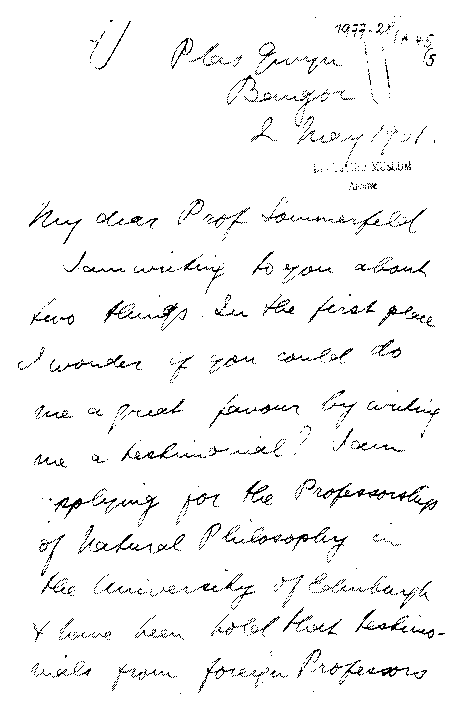 1977-28/A 45/5
1)
Plas Gwyn
Bangor
2 May 1901.
Museum
My dear Prof Sommerfeld
I am writing to you about
two things. In the first place
I wonder if you could do
me a great favour by writing
me a testimonial? I am
applying for the Professorship
of Natural Philosophy in
the University of Edinburgh
& have been told that testimo-
nials from foreign Professors